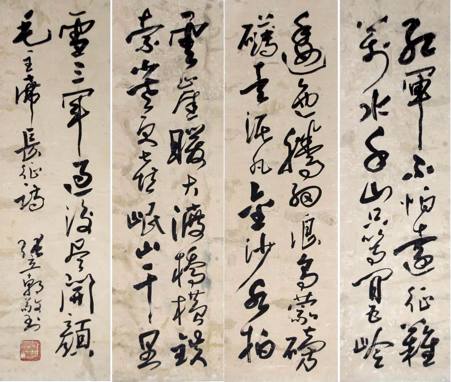 紅軍不怕遠征難
萬水千山只等閒五嶺
逶迤騰細浪烏蒙磅
礴走泥丸金沙水拍
雲崖暖大渡橋橫鐵
索寒更喜岷山千里
雪三軍過後尽開顏
毛主席長征詩